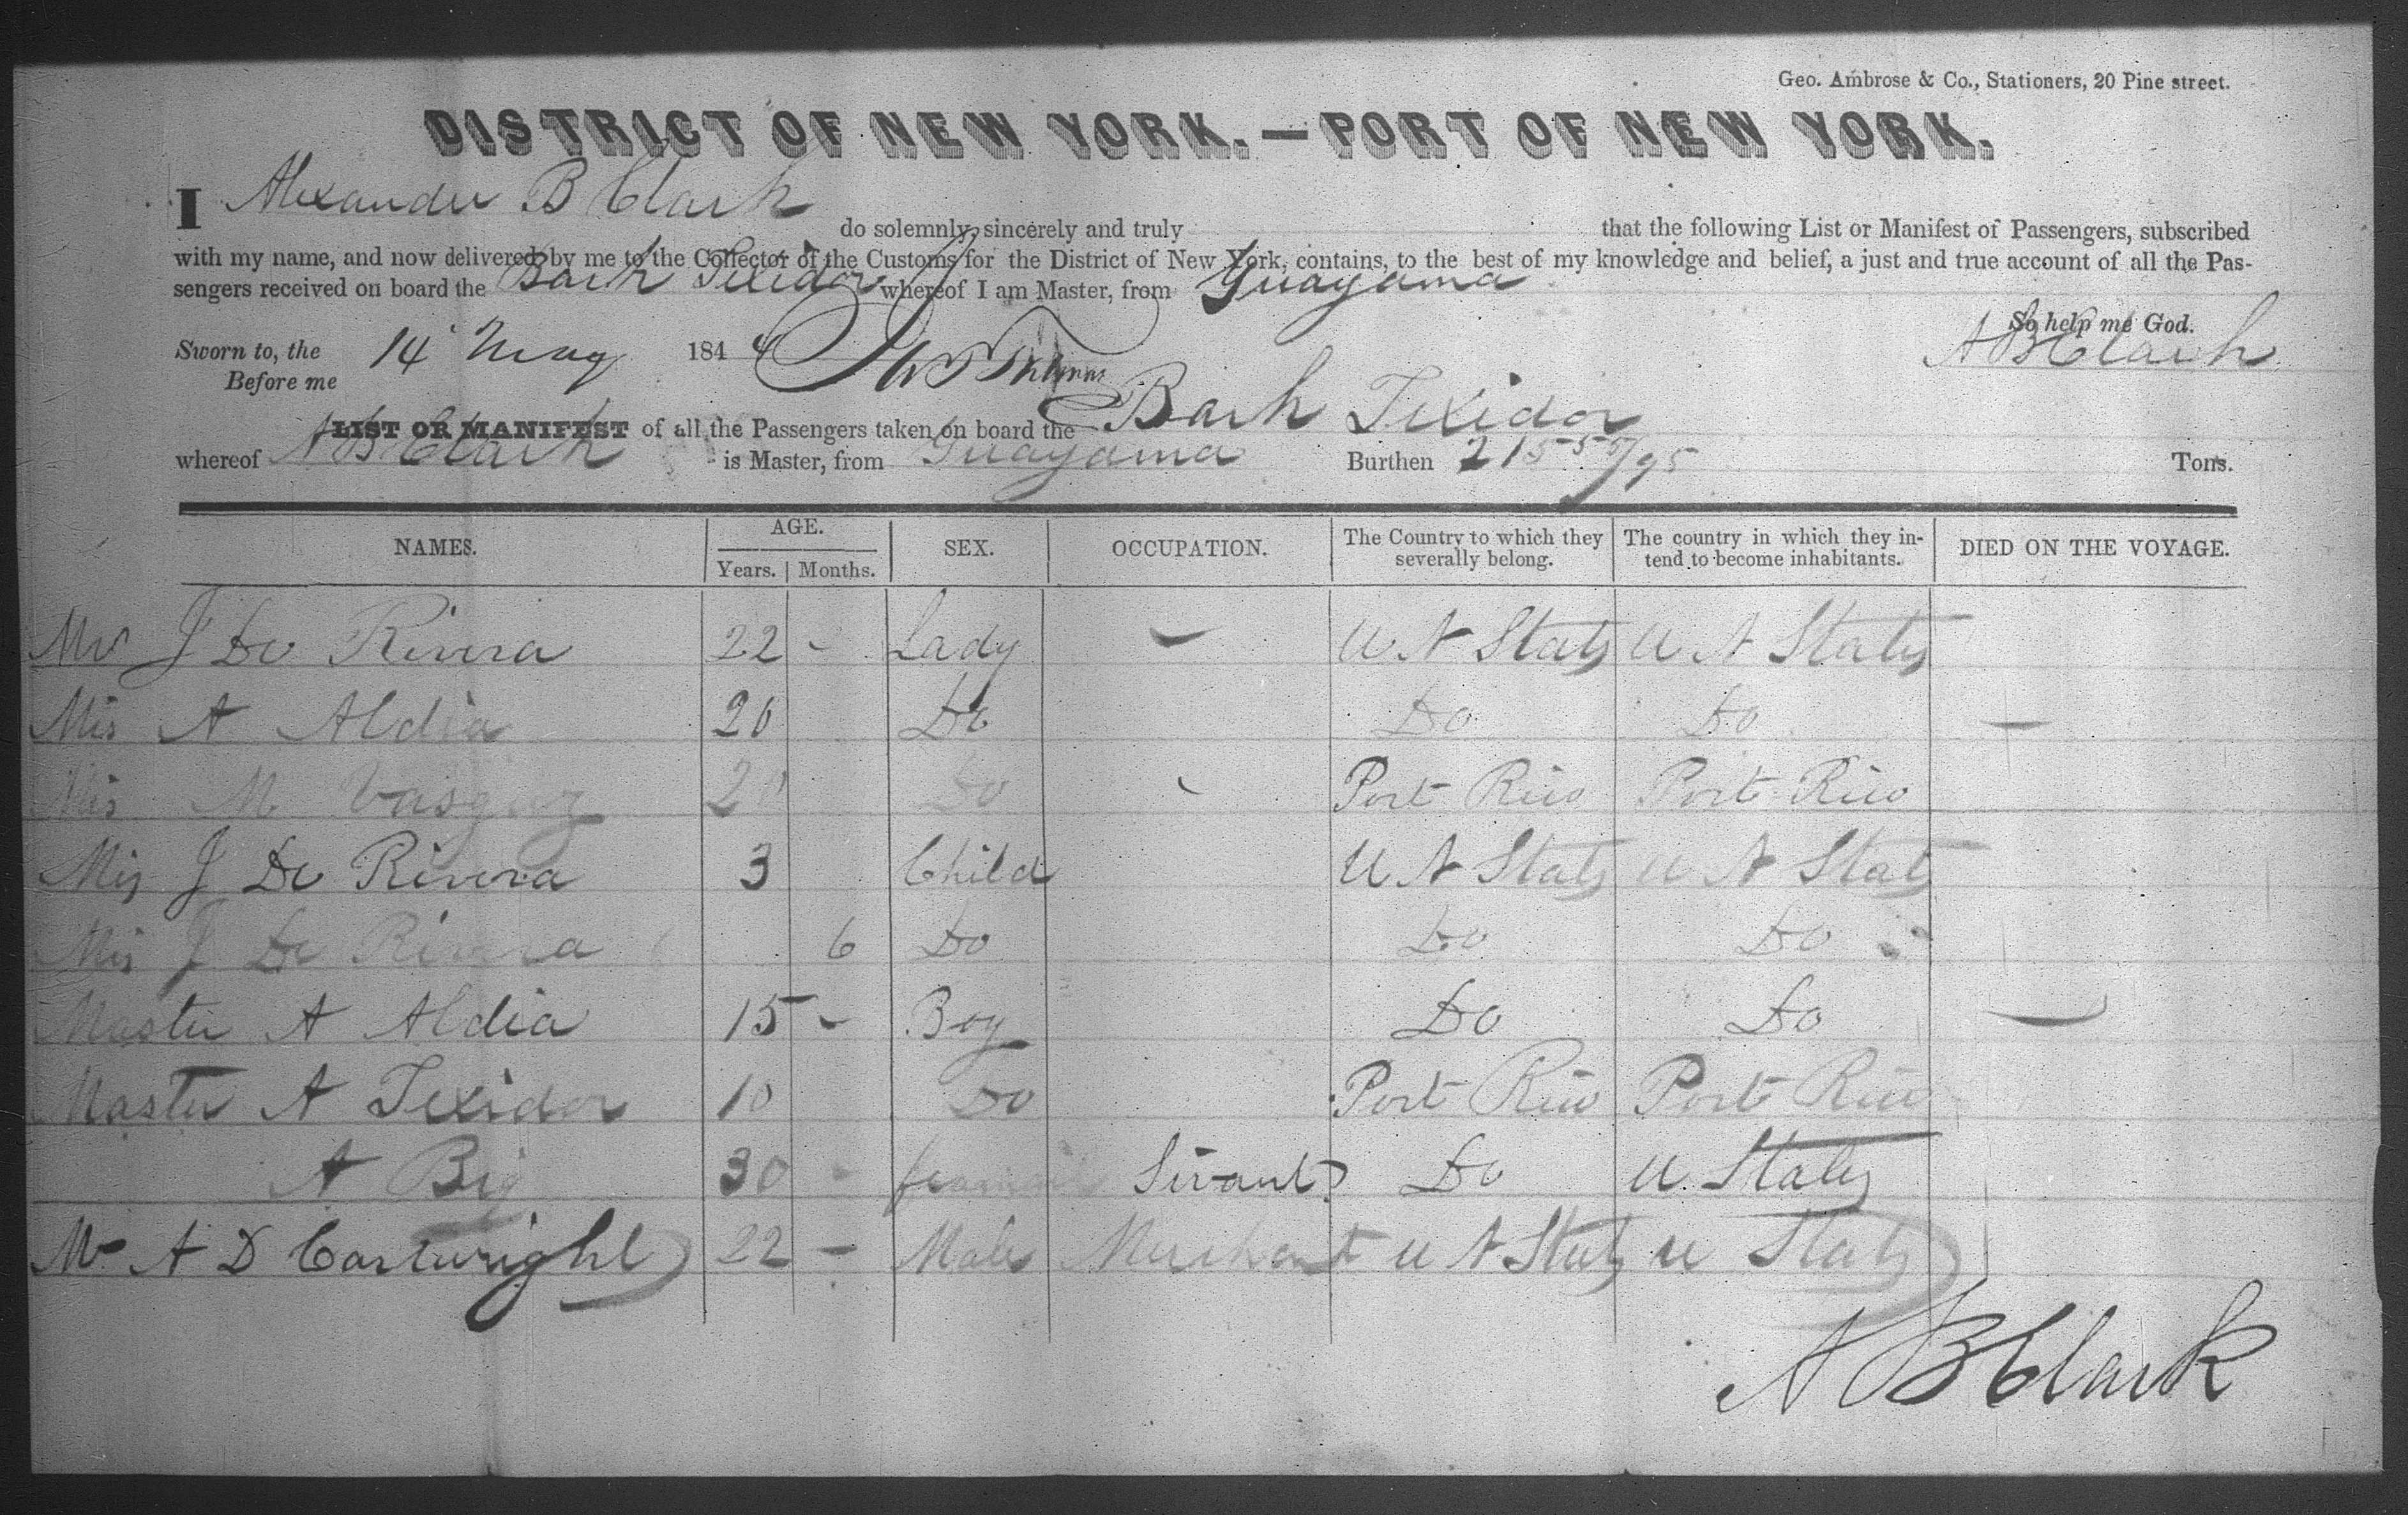 Geo. Ambrose & Co., Stationers, 20 Pine street.
DISTRICT OF NEW YORK.—PORT OF NEW YORK.
I Alexander B Clark do solemnly, sincerely and truly that the following List or Manifest of Passengers, subscribed
with my name, and now delivered by me to the Collector of the Customs for the District of New York, contains, to the best of my knowledge and belief, a just and true account of all the Pas-
sengers received on board the Bark Texidor whereof I am Master, from Guayama
So help me God.
Sworn to, the 14 May 1844 A B Clark
Before me
LIST OR MANIFEST of all the Passengers taken on board the Bark Texidor
whereof A B Clark is Master, from Guayama Burthen 215 55/95 Tons.
NAMES. AGE. Years. Months. SEX. OCCUPATION. The Country to which they severally belong. The country in which they intend to become inhabitants. DIED ON THE VOYAGE.
J De Rivera 22 - Lady - U N States U N States
Mis A Aldea 20 Do Do Do -
Mis M Vasquez Do Port Rico Port Rico
Mis J De Rivera 3 Child U N States U N States
Mis J De Rivera 6 Do Do Do
Master A Aldea 15 - Boy Do Do -
Master A Texidor 10 Do Port Rico Port Rico
A Big 30 - Sirvant Do U. States
Mr A D Cartwright 22 - Male Merchant U N States U States
A B Clark